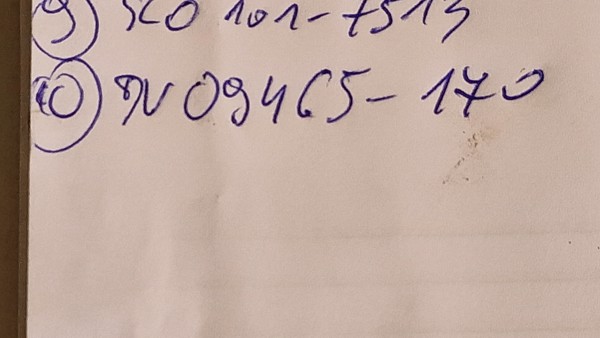 9) SCO 101-7513
10) PV 09465-170